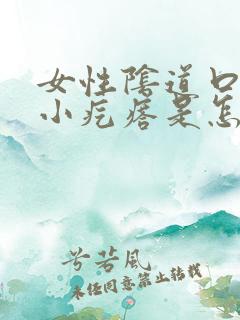 女性陰道口
小疙瘩是怎
兮若風
未经同意禁止转载